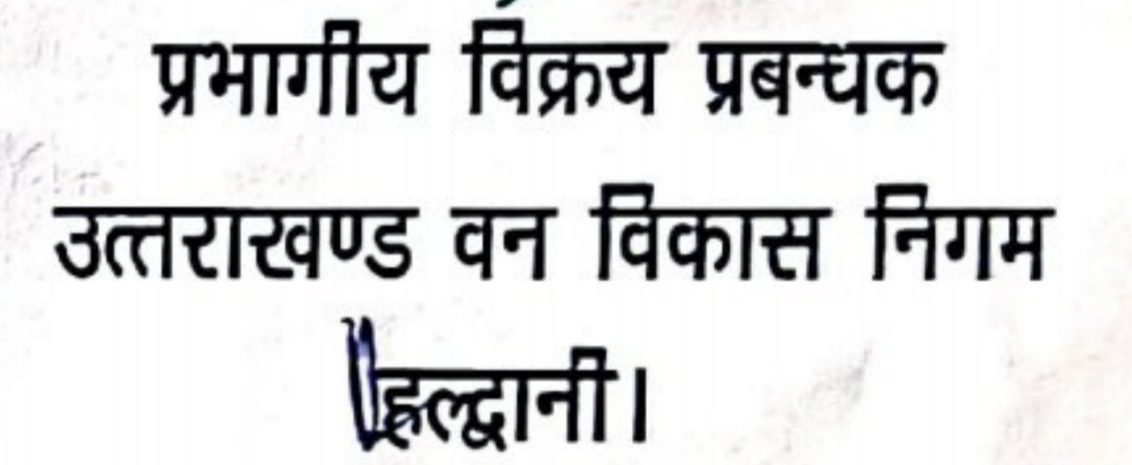 प्रभागीय विक्रय प्रबन्धक
उत्तराखण्ड वन विकास निगम
हल्द्वानी।